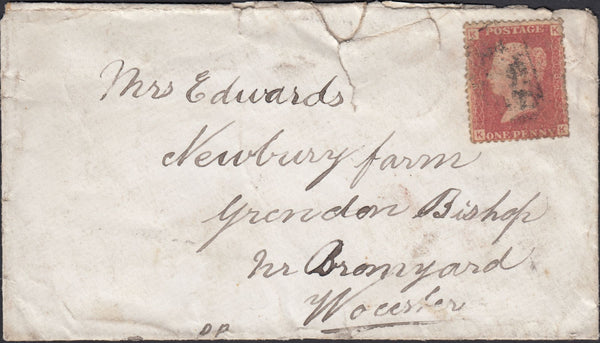 K POSTAGE K
K ONE PENNY K
Mrs Edwards
Newbury farm
Grendon Bishop
nr Bromyard
Worcester